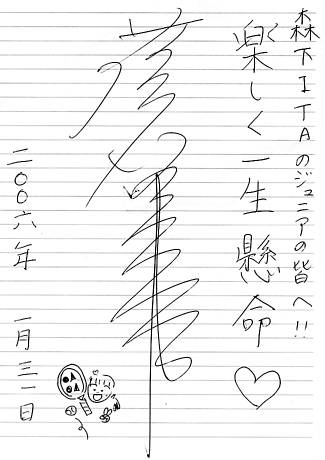 森下ITAのジュニアの皆へ!!
楽しく一生懸命♡
二〇〇六年 一月三一日